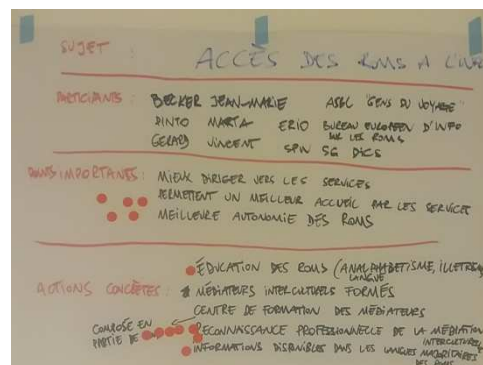 SUJET : ACCÈS DES ROMS A L'INFO
PARTICIPANTS : BECKER JEAN-MARIE ASBL "GENS DU VOYAGE"
PINTO MARTA ERIO BUREAU EUROPEEN D'INFO
SUR LES ROMS
GERARD VINCENT SPW SG DICS
IMPORTANTES : MIEUX DIRIGER VERS LES SERVICES
PERMETTENT UN MEILLEUR ACCUEIL PAR LES SERVICES
MEILLEURE AUTONOMIE DES ROMS
ÉDUCATION DES ROMS (ANALPHABETISME, ILLETRISME
LANGUE
ACTIONS CONCRÈTES : MÉDIATEURS INTERCULTURELS FORMÉS
CENTRE DE FORMATION DES MÉDIATEURS
COMPOSÉ EN
PARTIE DE RECONNAISSANCE PROFESSIONNELLE DE LA MÉDIATION
INTERCULTURELLE
INFORMATIONS DISPONIBLES DANS LES LANGUES MAJORITAIRES
DES ROMS